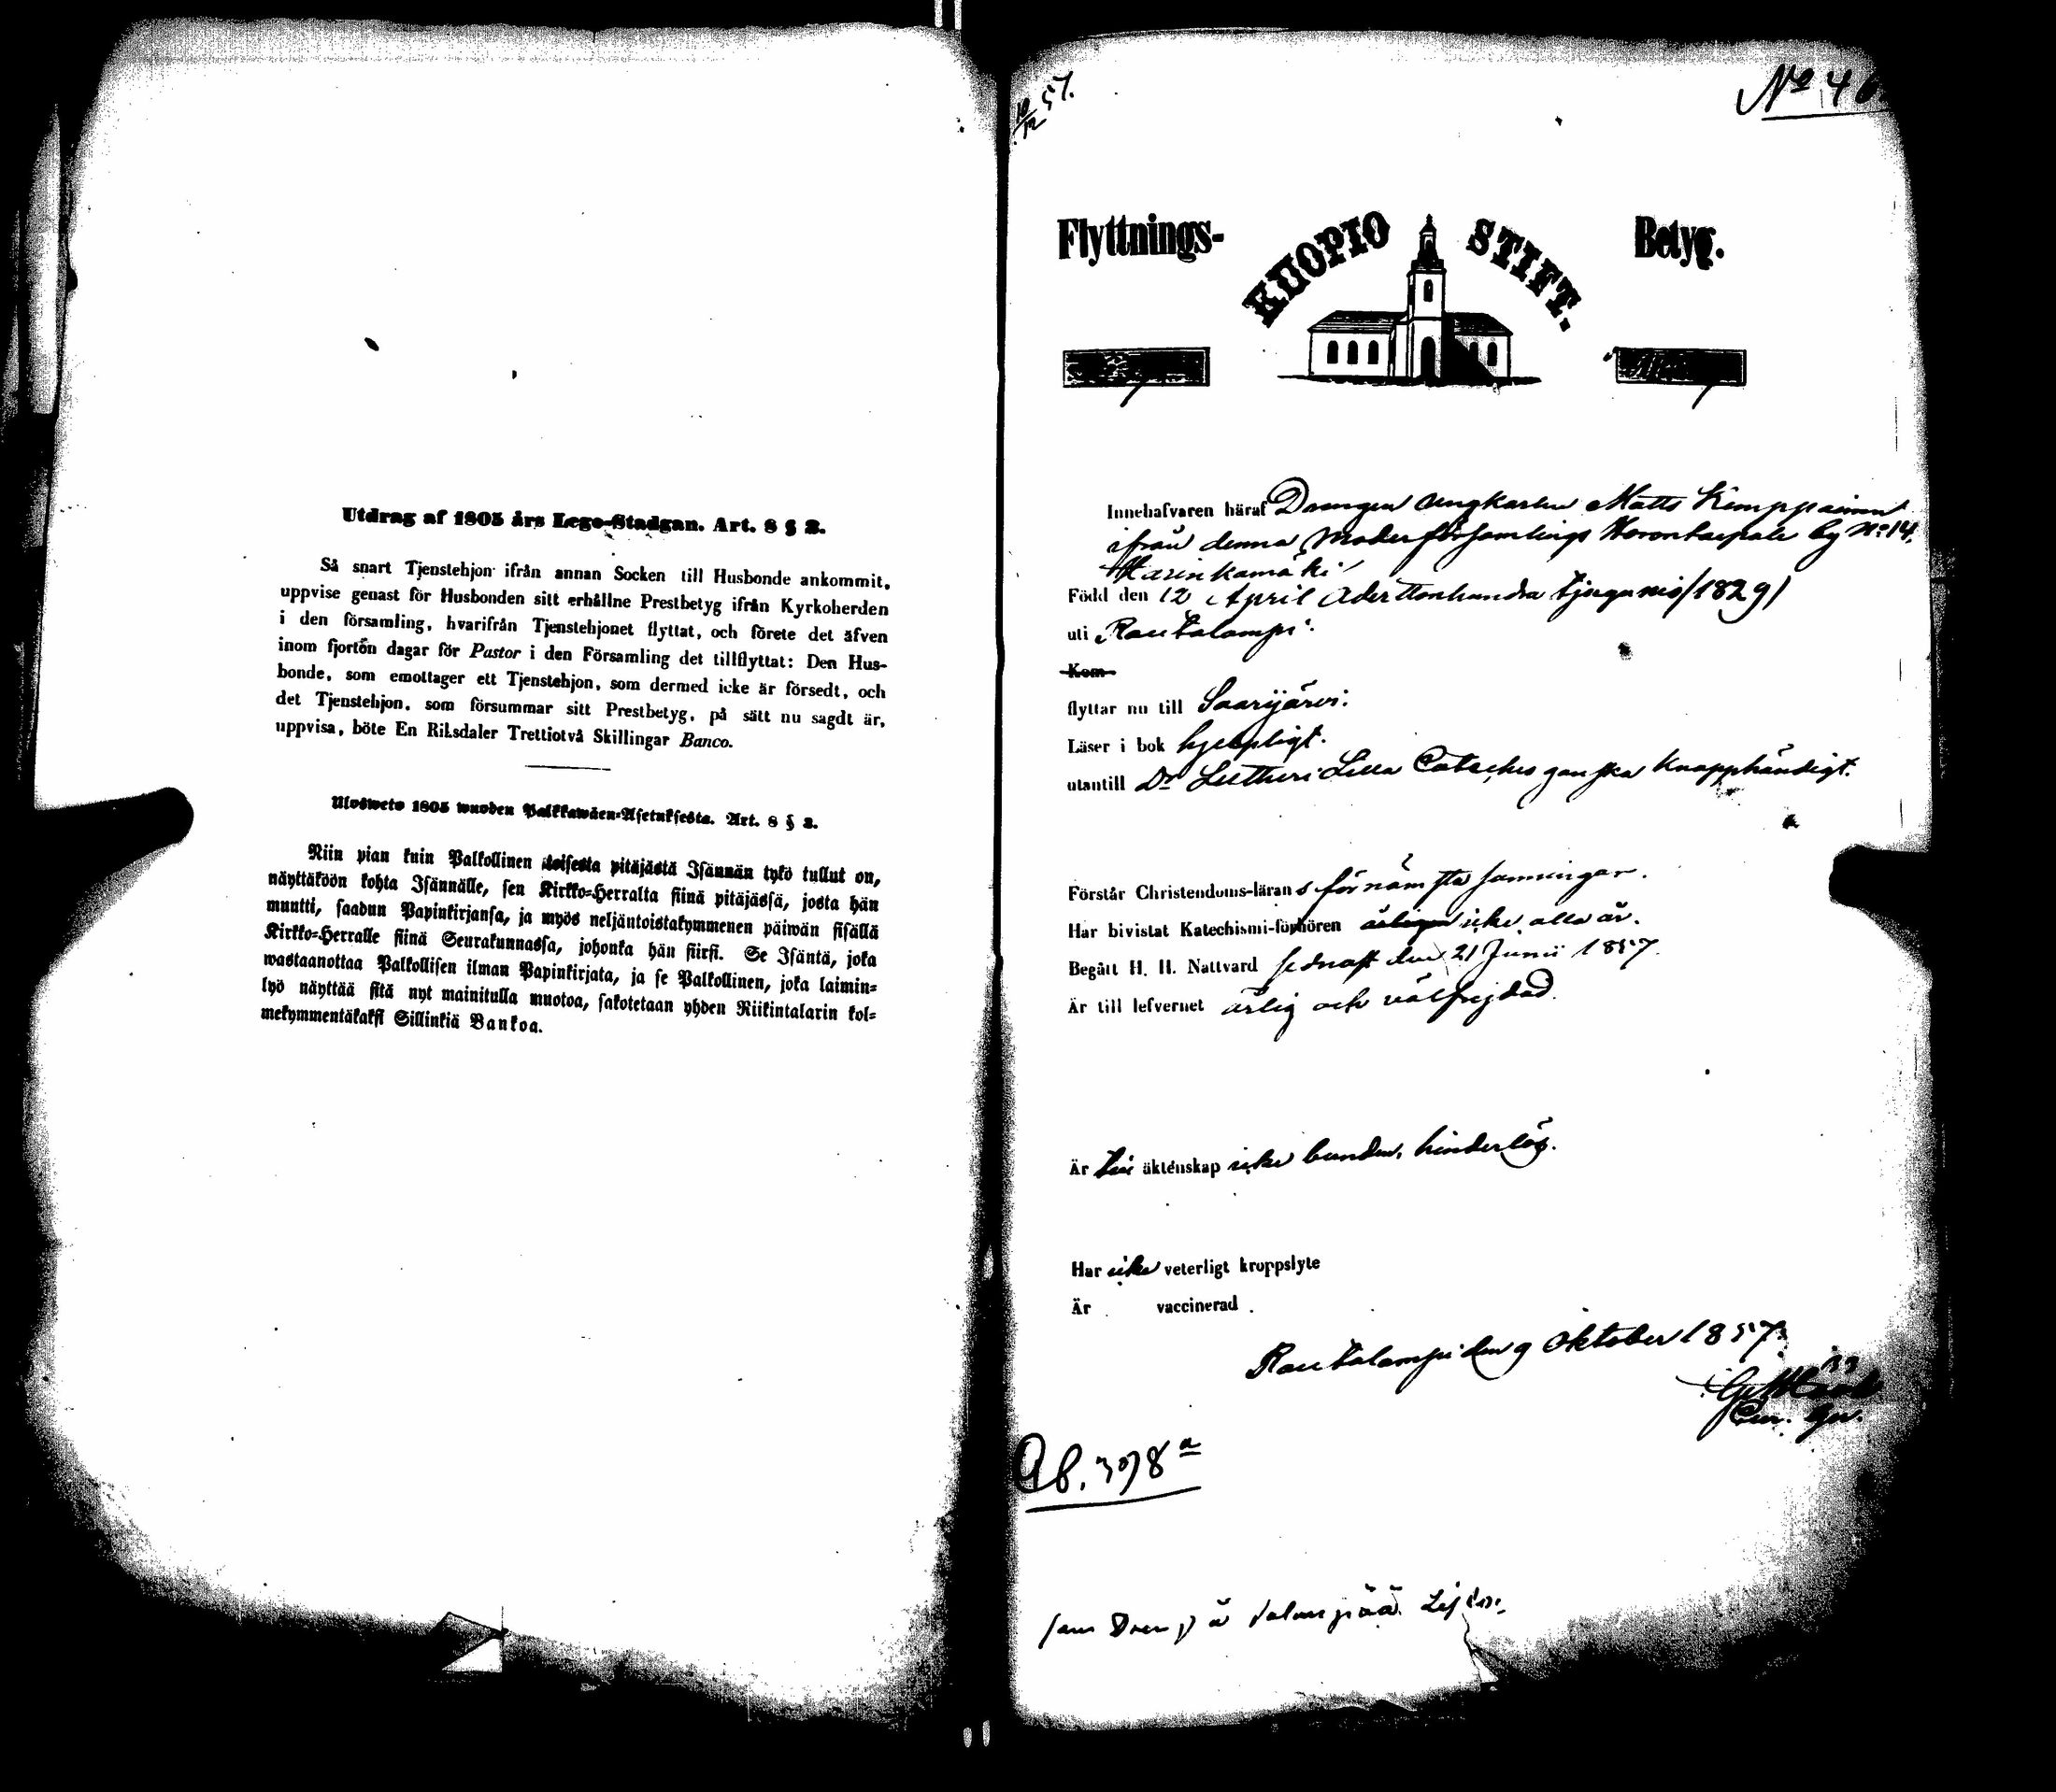 Utdrag af 1805 års Lego-Stadgan. Art. 8 § 2.
Så snart Tjenstehjon ifrån annan Socken till Husbonde ankommit,
uppvise genast för Husbonden sitt erhållne Prestbetyg ifrån Kyrkoherden
i den församling, hvarifrån Tjenstehjonet flyttat, och förete det äfven
inom fjorton dagar för Pastor i den Församling det tillflyttat: Den Hus-
bonde, som emottager ett Tjenstehjon, som dermed icke är försedt, och
det Tjenstehjon, som försummar sitt Prestbetyg, på sätt nu sagdt är,
uppvisa, böte En Riksdaler Trettiotvå Skillingar Banco.
Ulosweto 1805 wuoden Palkkawäen-Asetuksesta. Art. 8 § 2.
Niin pian kuin Palkollinen toisesta pitäjästä Isännän tykö tullut on,
näyttäköön kohta Isännälle, sen Kirkko-Herralta siinä pitäjässä, josta hän
muutti, saadun Papinkirjansa, ja myös neljäntoistakymmenen päiwän sisällä
Kirkko-Herralle siinä Seurakunnassa, johonka hän siirsi. Se Isäntä, joka
wastaanottaa Palkollisen ilman Papinkirjata, ja se Palkollinen, joka laimin-
lyö näyttää sitä nyt mainitulla muotoa, sakotetaan yhden Riikintalarin kol-
mekymmentäkaksi Sillinkiä Bankoa.
10/12 57.
No 46
Flyttnings- KUOPIO STIFT. Betyg.
Innehafvaren häraf Drengen ungkarlen Matts Kemppainen
ifrån denna Moderförsamlings by No 14.
Född den 12 April Adertonhundra tjugunio (1829)
uti Rautalampi.
Kom
flyttar nu till Saarijärvi.
Läser i bok hjelpligt.
utantill Dr Lutheri Lilla Cateches ganska knapphändigt.
Förstår Christendoms-lärans förnämsta sanningar.
Har bivistat Katechismi-förhören årligen icke alla år.
Begått H. H. Nattvard sednast den 21 Junii 1857.
Är till lefvernet ärlig och välfrejdad.
Är till äktenskap icke bunden, hinderlös.
Har icke veterligt kroppslyte
Är vaccinerad
Rautalampi den 9 Oktober 1857.